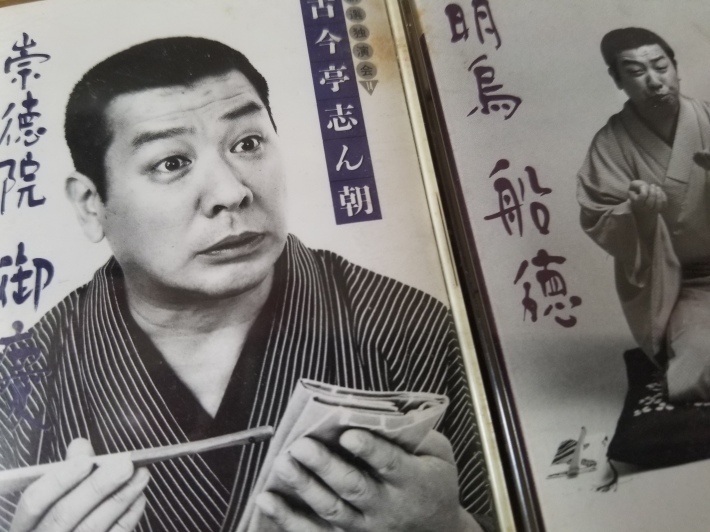 独演会
古今亭志ん朝
崇徳院 御慶
明烏
船徳